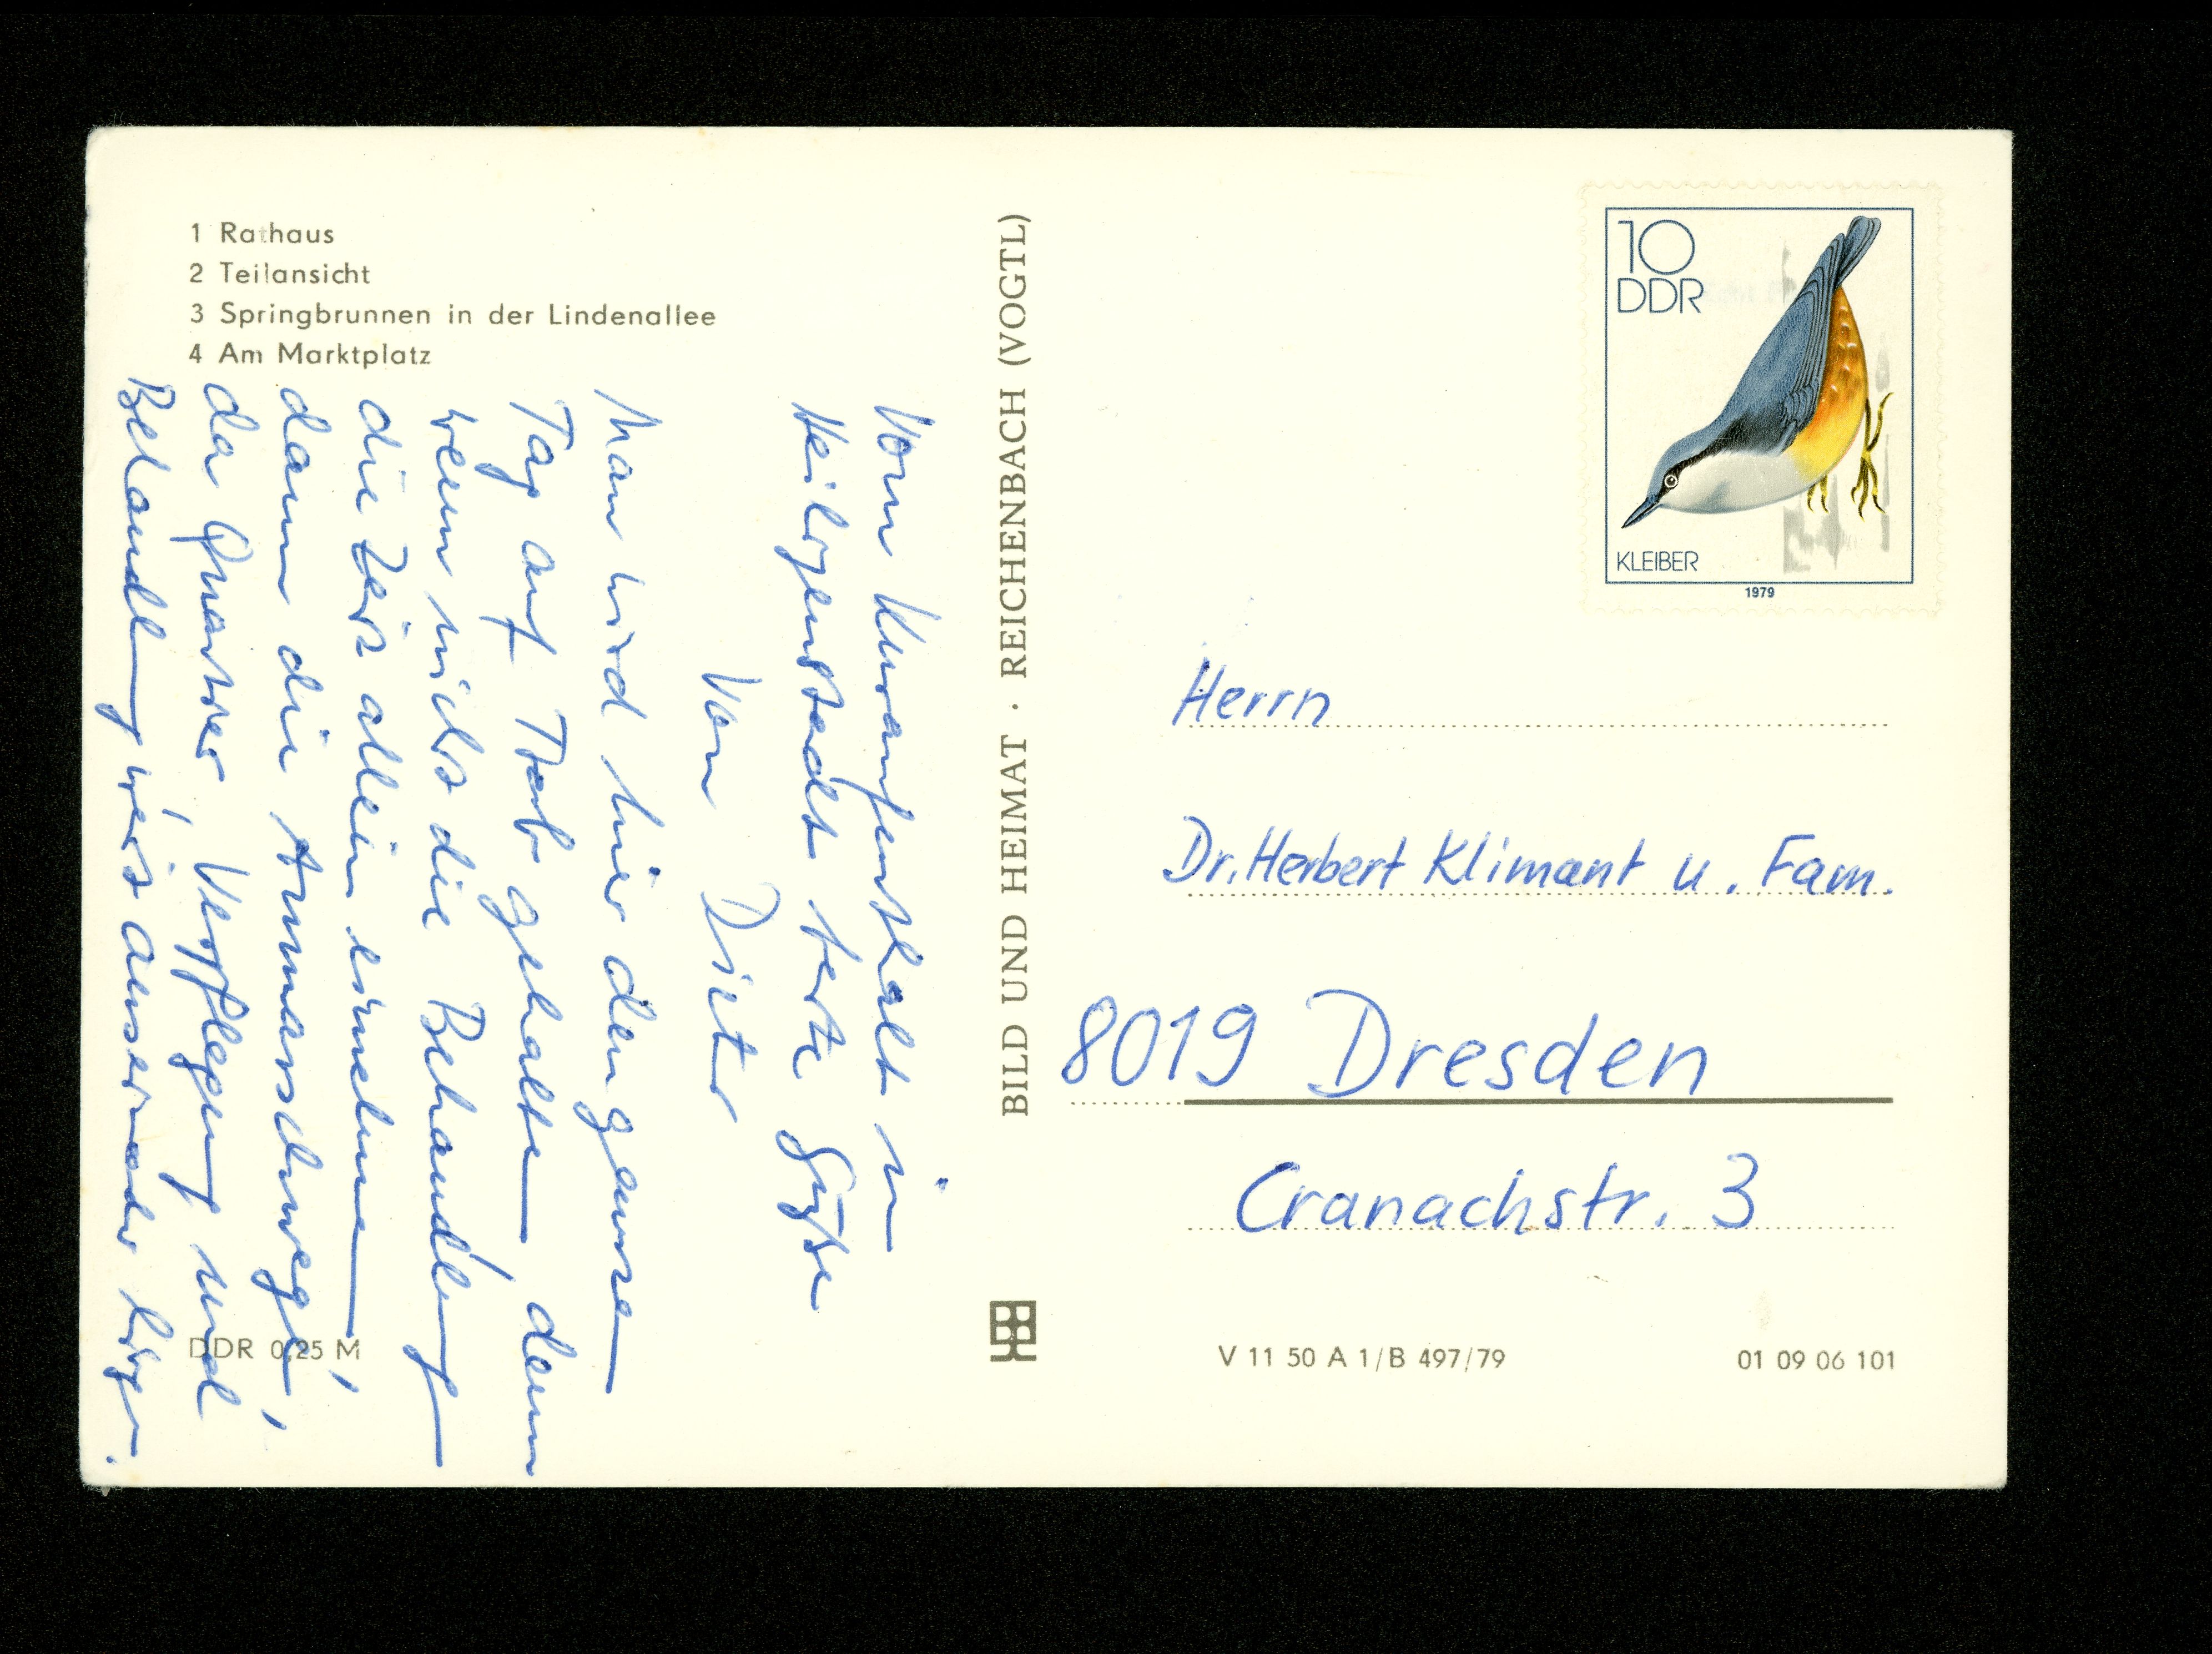 1 Rathaus
2 Teilansicht
3 Springbrunnen in der Lindenallee
4 Am Marktplatz
Vom Kuraufenthalt in
Heiligenstadt
Grüße
Von Dieter
Man wird hier den ganzen
Tag auf Trab gehalten denn
wenn nicht die Behandlung
die Zeit allein einnehmen,
dann die Anmarschwege,
da Quartier Verpflegung und
Behandlung weit auseinander liegen.
DDR 0,25 M
BILD UND HEIMAT · REICHENBACH (VOGTL)
10
DDR
KLEIBER
1979
Herrn
Dr. Herbert Klimant u. Fam.
8019 Dresden
Cranachstr. 3
V 11 50 A 1/B 497/79
01 09 06 101